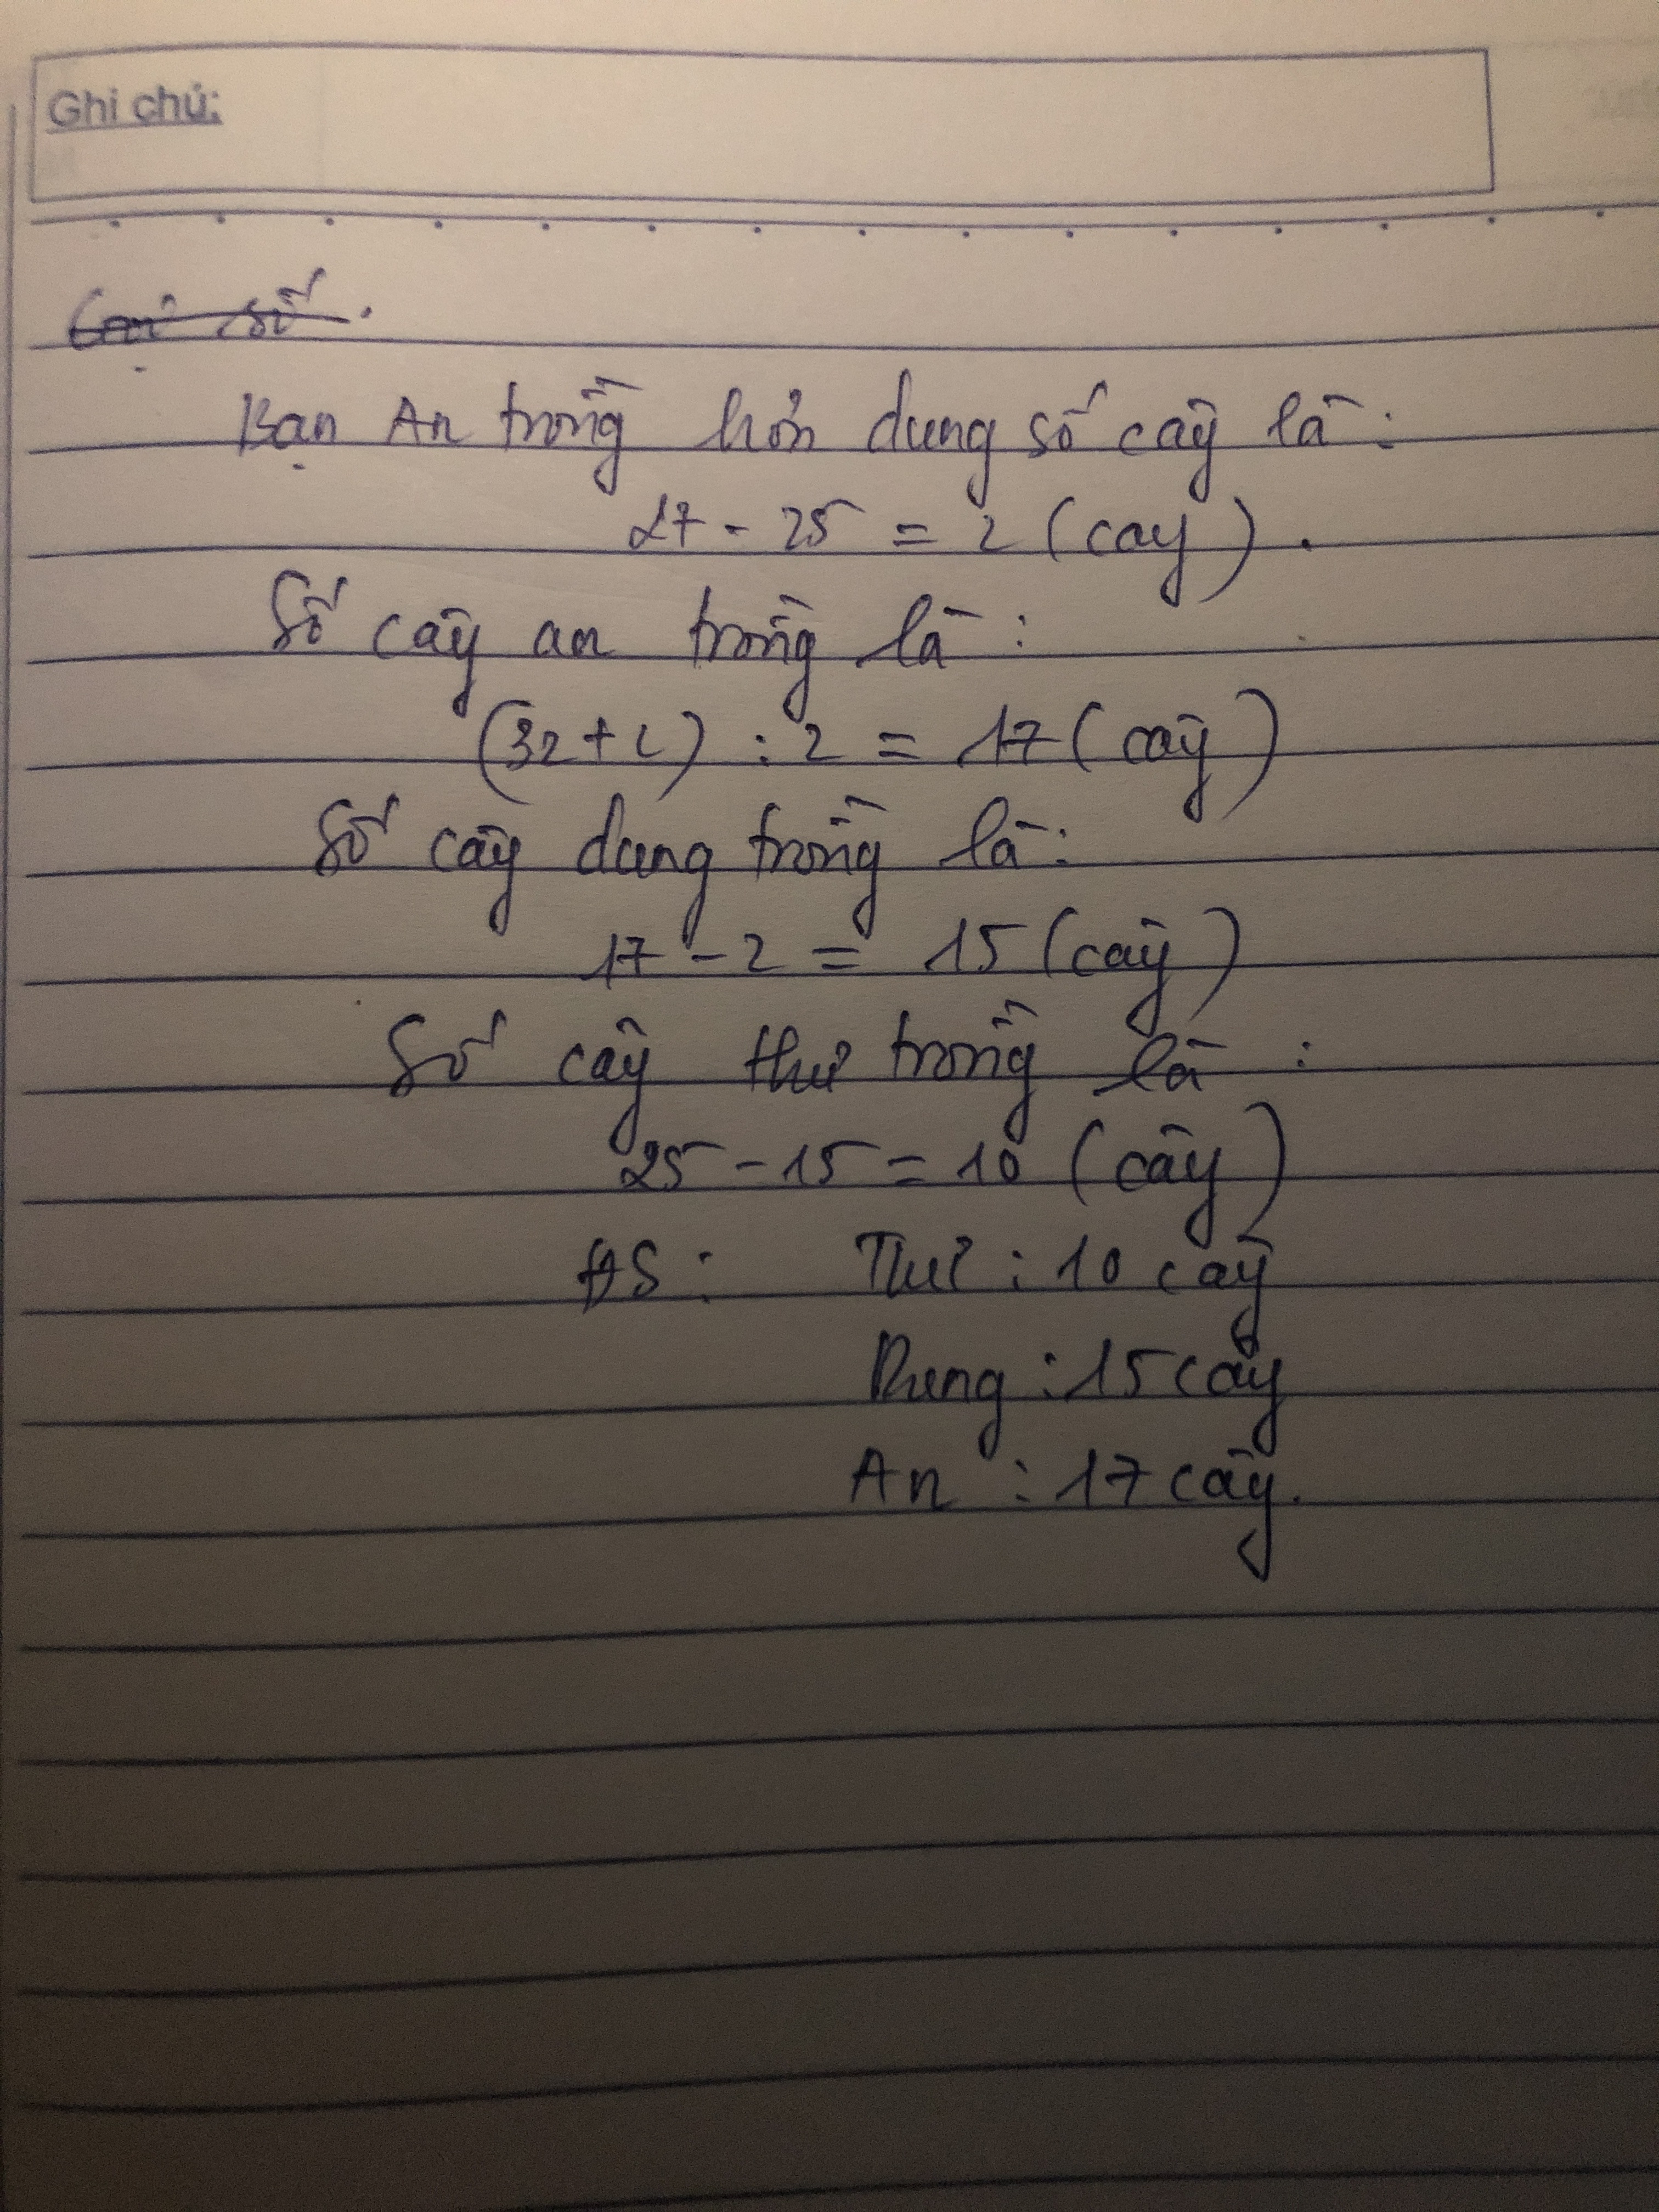 Ghi chú:
số.
Bạn An trồng hơn dung số cây là:
27 - 25 = 2 (cay).
Số cây an trồng là:
(32 + 2) : 2 = 17 (cây)
Số cây dung trồng là:
17 - 2 = 15 (cây)
Số cây thư trồng là:
25 - 15 = 10 (cây)
ĐS: Thư : 10 cây
Dung : 15 cây
An : 17 cây.